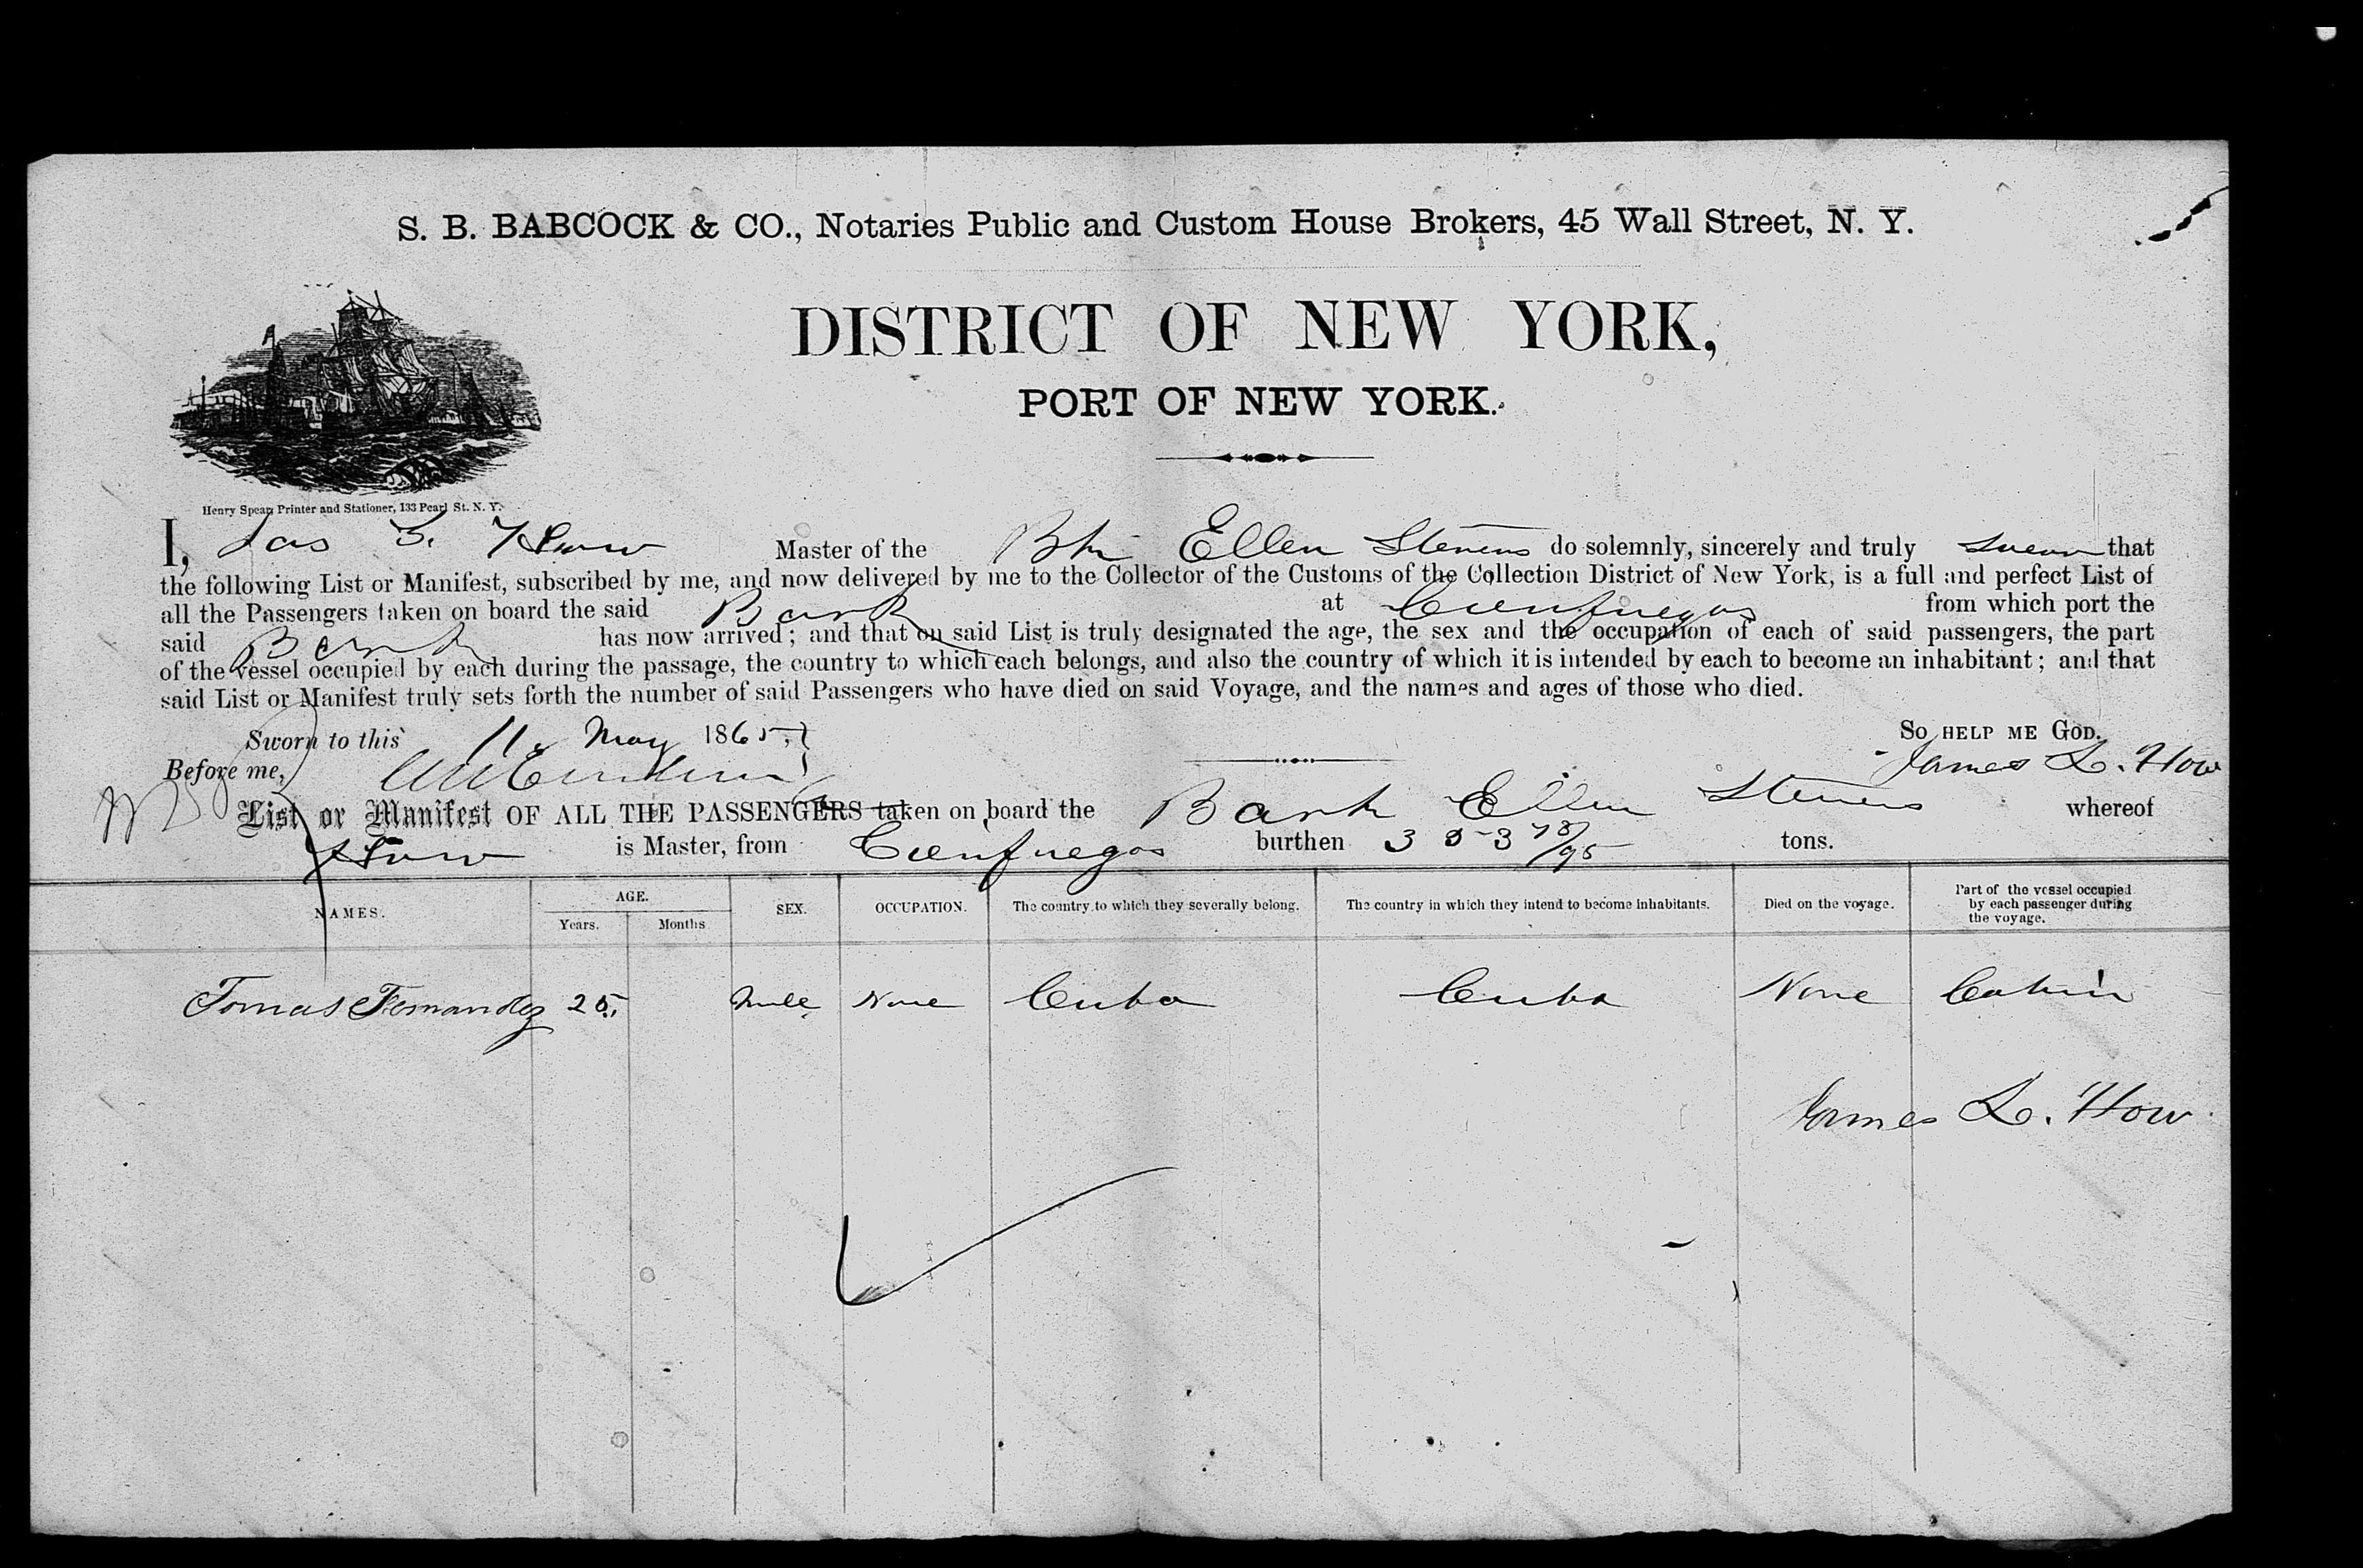 S. B. BABCOCK & CO., Notaries Public and Custom House Brokers, 45 Wall Street, N. Y.
DISTRICT OF NEW YORK,
PORT OF NEW YORK.
Henry Spear, Printer and Stationer, 133 Pearl St. N. Y.
I, Jas L. How Master of the Bk Ellen Stevens do solemnly, sincerely and truly swear that
the following List or Manifest, subscribed by me, and now delivered by me to the Collector of the Customs of the Collection District of New York, is a full and perfect List of
all the Passengers taken on board the said Bark at Cienfuegos from which port the
said Bark has now arrived; and that on said List is truly designated the age, the sex and the occupation of each of said passengers, the part
of the vessel occupied by each during the passage, the country to which each belongs, and also the country of which it is intended by each to become an inhabitant; and that
said List or Manifest truly sets forth the number of said Passengers who have died on said Voyage, and the names and ages of those who died.
Sworn to this 11. May 1865. SO HELP ME GOD.
Before me, James L. How
List or Manifest OF ALL THE PASSENGERS taken on board the Bark Ellen Stevens whereof
How is Master, from Cienfuegos burthen tons.
NAMES. AGE. Years. Months SEX. OCCUPATION. The country to which they severally belong. The country in which they intend to become inhabitants. Died on the voyage. Part of the vessel occupied by each passenger during the voyage.
Tomas Fernandez 25. Male None Cuba Cuba None Cabin
James L. How